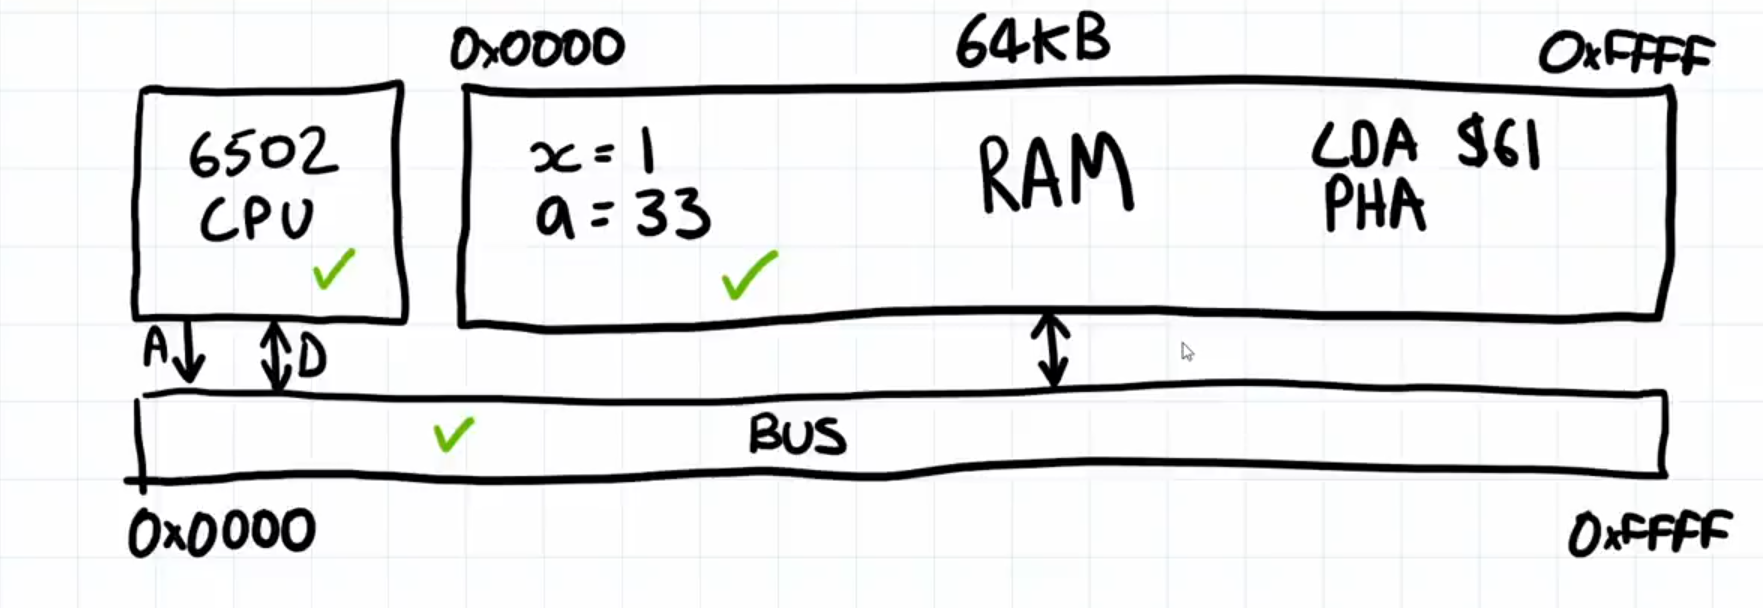 0x0000
64KB
0xFFFF
6502
CPU
x = 1
a = 33
RAM
LDA $61
PHA
A
D
BUS
0x0000
0xFFFF